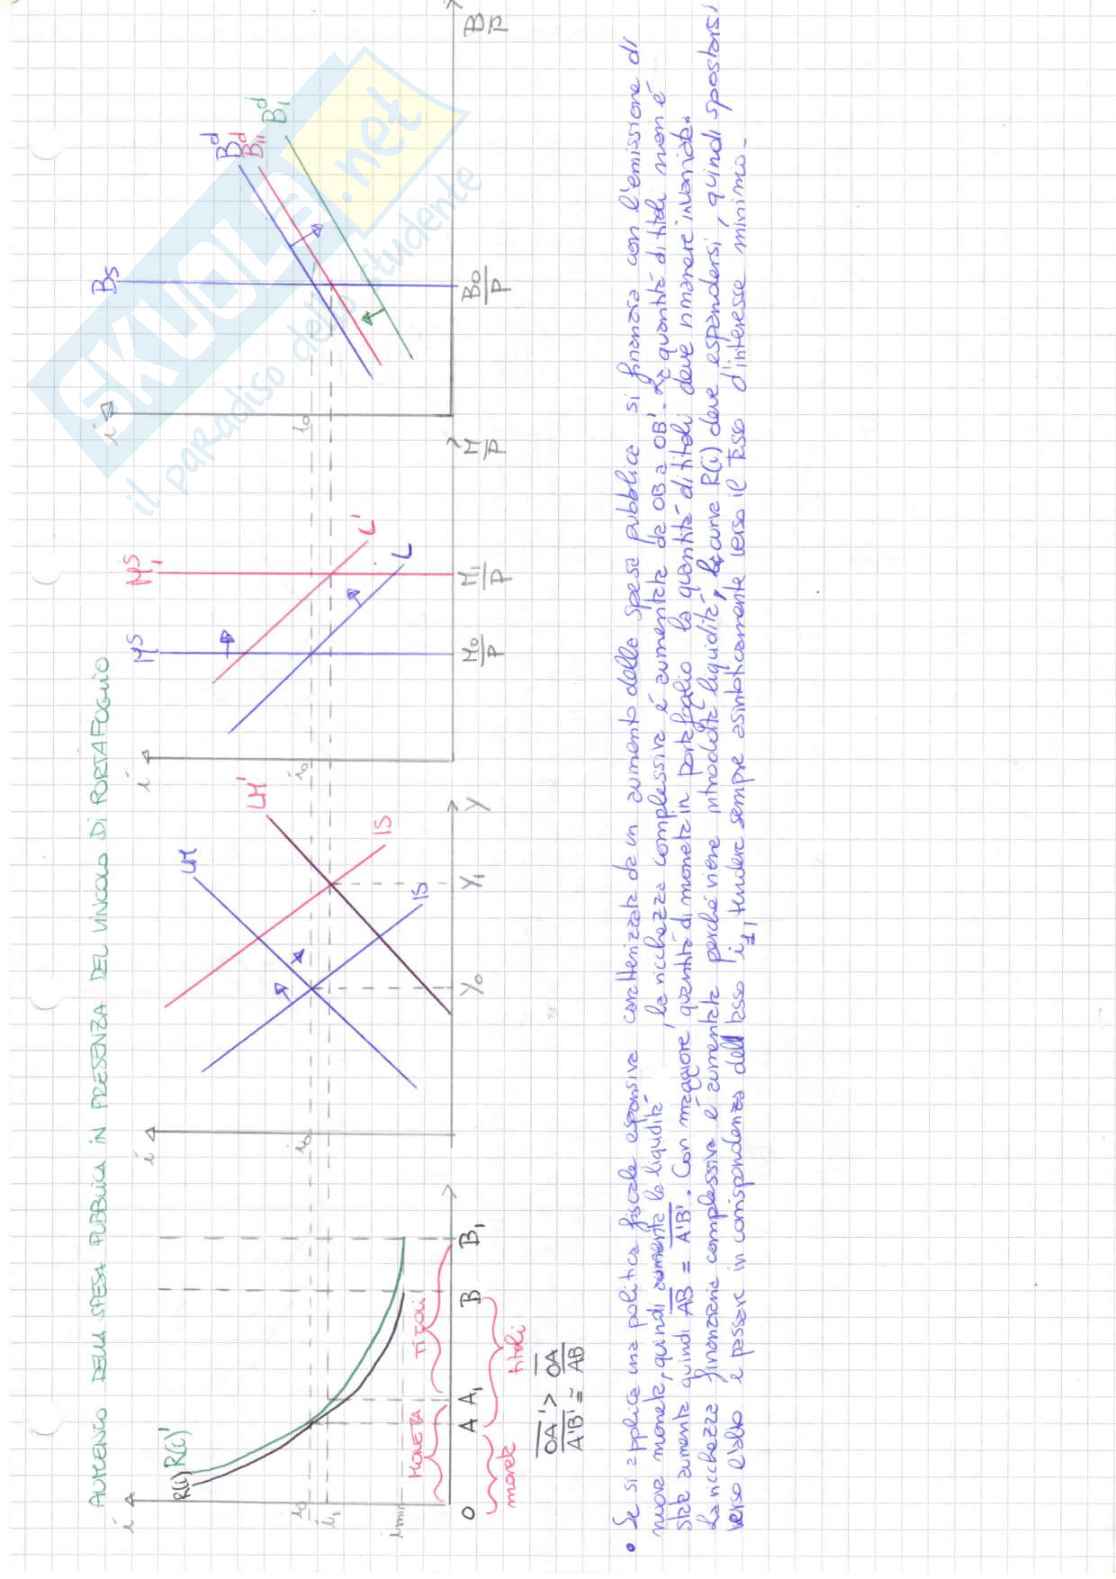 AUMENTO DELLA SPESA PUBBLICA IN PRESENZA DEL VINCOLO DI PORTAFOGLIO
i
R(i) R(i)'
i0
i1
imin
MONETA TITOLI
O A A1 B B1
monete titoli
OA' > OA
A'B' = AB
i
LM
LM'
IS
IS
i0
Y0 Y1 Y
i
M^S
M^S_1
L'
L
i0
M0/P M1/P M/P
i
BS
B^d
B^d_11
B^d_1
i0
B0/P B/P
SKUOLA.net
il paradiso dello studente
• Se si applica una politica fiscale espansiva caratterizzata da un aumento della spesa pubblica si finanzia con l'emissione di
nuova moneta, quindi aumenta la liquidità, la ricchezza complessiva è aumentata da OB a OB'. La quantità di titoli non è
stata aumenta quindi AB = A'B'. Con maggiore quantità di moneta in portafoglio la quantità di titoli deve rimanere invariata.
La ricchezza finanziaria complessiva è aumentata perché viene introdotta liquidità, la curva R(i) deve espandersi, quindi spostarsi
verso l'alto e passare in corrispondenza dell tasso i1, tendere sempre asintoticamente verso il tasso d'interesse minimo.